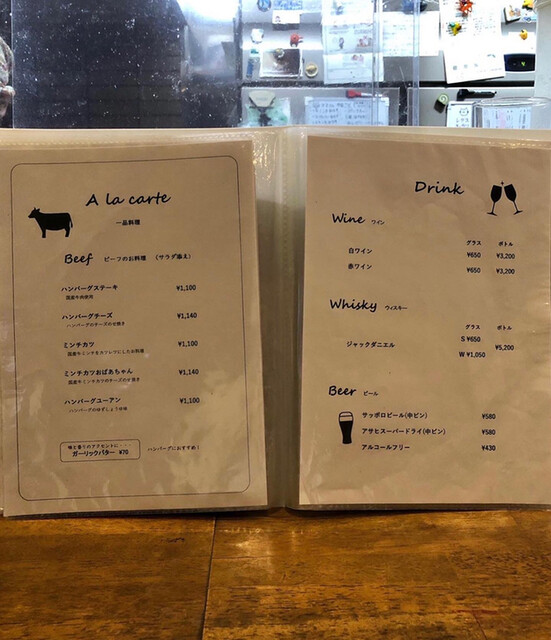 A la carte
一品料理
Beef ビーフのお料理 (サラダ添え)
ハンバーグステーキ ¥1,100
国産牛肉使用
ハンバーグチーズ ¥1,140
ハンバーグのチーズのせ焼き
ミンチカツ ¥1,100
国産牛ミンチをカツレツにしたお料理
ミンチカツおばあちゃん ¥1,140
国産牛ミンチカツのチーズのせ焼き
ハンバーグユーアン ¥1,100
ハンバーグのゆずしょうゆ味
味と香りのアクセントに・・・
ガーリックバター ¥70
ハンバーグにおすすめ!
Drink
Wine ワイン
グラス ボトル
白ワイン ¥650 ¥3,200
赤ワイン ¥650 ¥3,200
Whisky ウィスキー
グラス ボトル
ジャックダニエル S ¥650 ¥5,200
W ¥1,050
Beer ビール
サッポロビール(中ビン) ¥580
アサヒスーパードライ(中ビン) ¥580
アルコールフリー ¥430